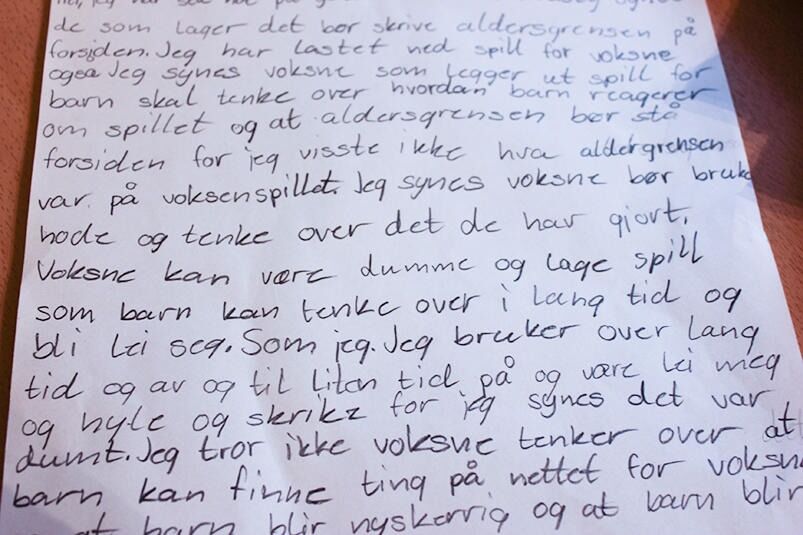 de som lager det bør skrive aldersgrensen på
forsiden. Jeg har lastet ned spill for voksne
også Jeg synes voksne som legger ut spill for
barn skal tenke over hvordan barn reagerer
om spillet og at aldersgrensen bør stå
forsiden for jeg visste ikke hva aldergrensen
var på voksenspillet. Jeg synes voksne bør bruke
hode og tenke over det de har gjort.
Voksne kan være dumme og lage spill
som barn kan tenke over i lang tid og
bli lei seg. Som jeg. Jeg bruker over lang
tid og av og til liten tid på og være lei meg
og hyle og skrike for jeg synes det var
dumt. Jeg tror ikke voksne tenker over at
barn kan finne ting på nettet for voksne
at barn blir nyskerrig og at barn blir